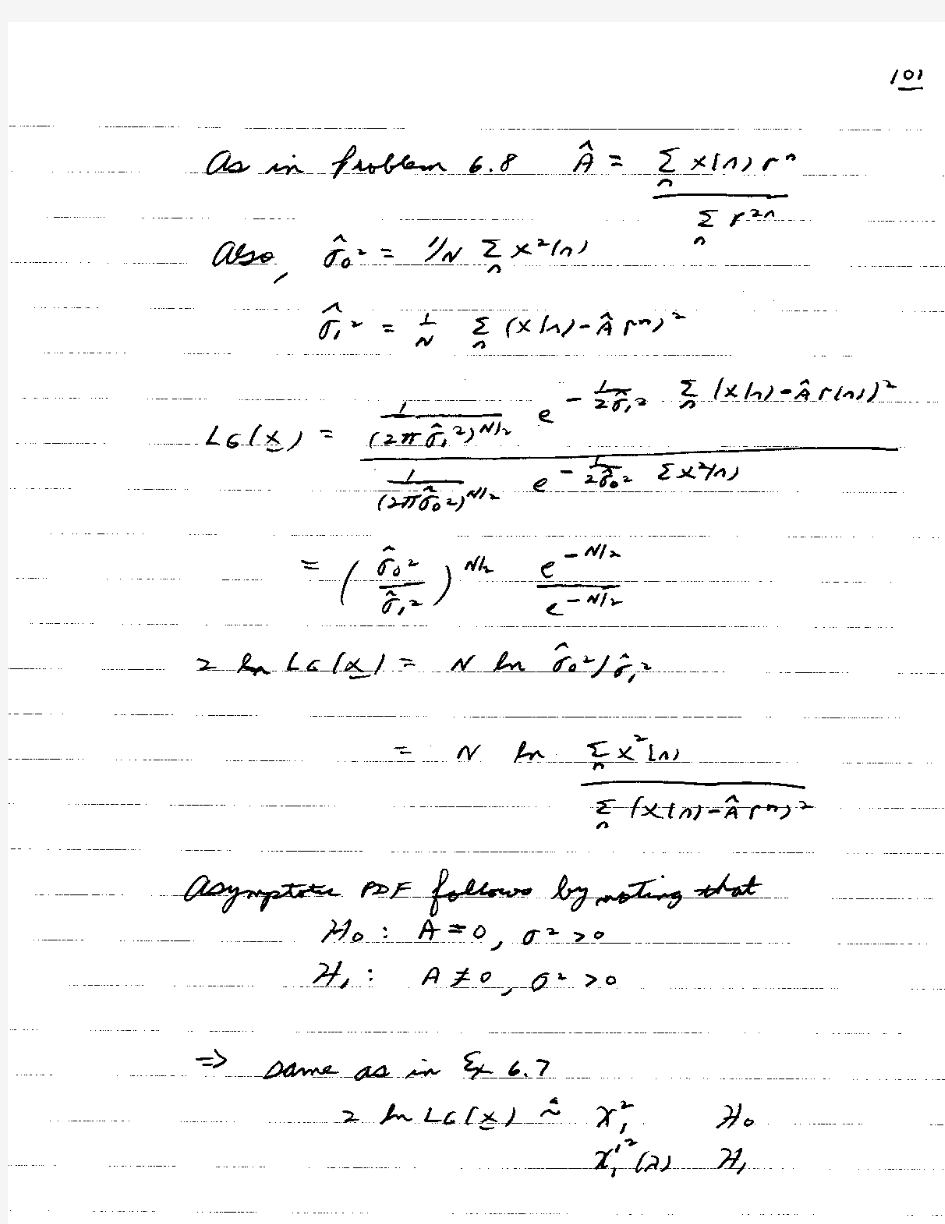 101
As in Problem 6.8 Â = Σₙ x(n) rⁿ / Σₙ r²ⁿ
Also, σ̂₀² = 1/N Σₙ x²(n)
σ̂₁² = 1/N Σₙ (x(n)-Â rⁿ)²
LG(x) = [1/(2π σ̂₁²)^(N/2) e^(-1/(2σ̂₁²) Σₙ (x(n)-Â r(n))²)] / [1/(2πσ̂₀²)^(N/2) e^(-1/(2σ̂₀²) Σ x²(n))]
= (σ̂₀²/σ̂₁²)^(N/2) e^(-N/2) / e^(-N/2)
2 ln LG(x) = N ln σ̂₀²/σ̂₁²
= N ln Σₙ x²(n) / Σₙ (x(n)-Â rⁿ)²
Asymptotic PDF follows by noting that
H₀: A = 0, σ² > 0
H₁: A ≠ 0, σ² > 0
⇒ same as in Ex 6.7
2 ln LG(x) ~ᵃ χ²₁ H₀
χ'²₁(λ) H₁